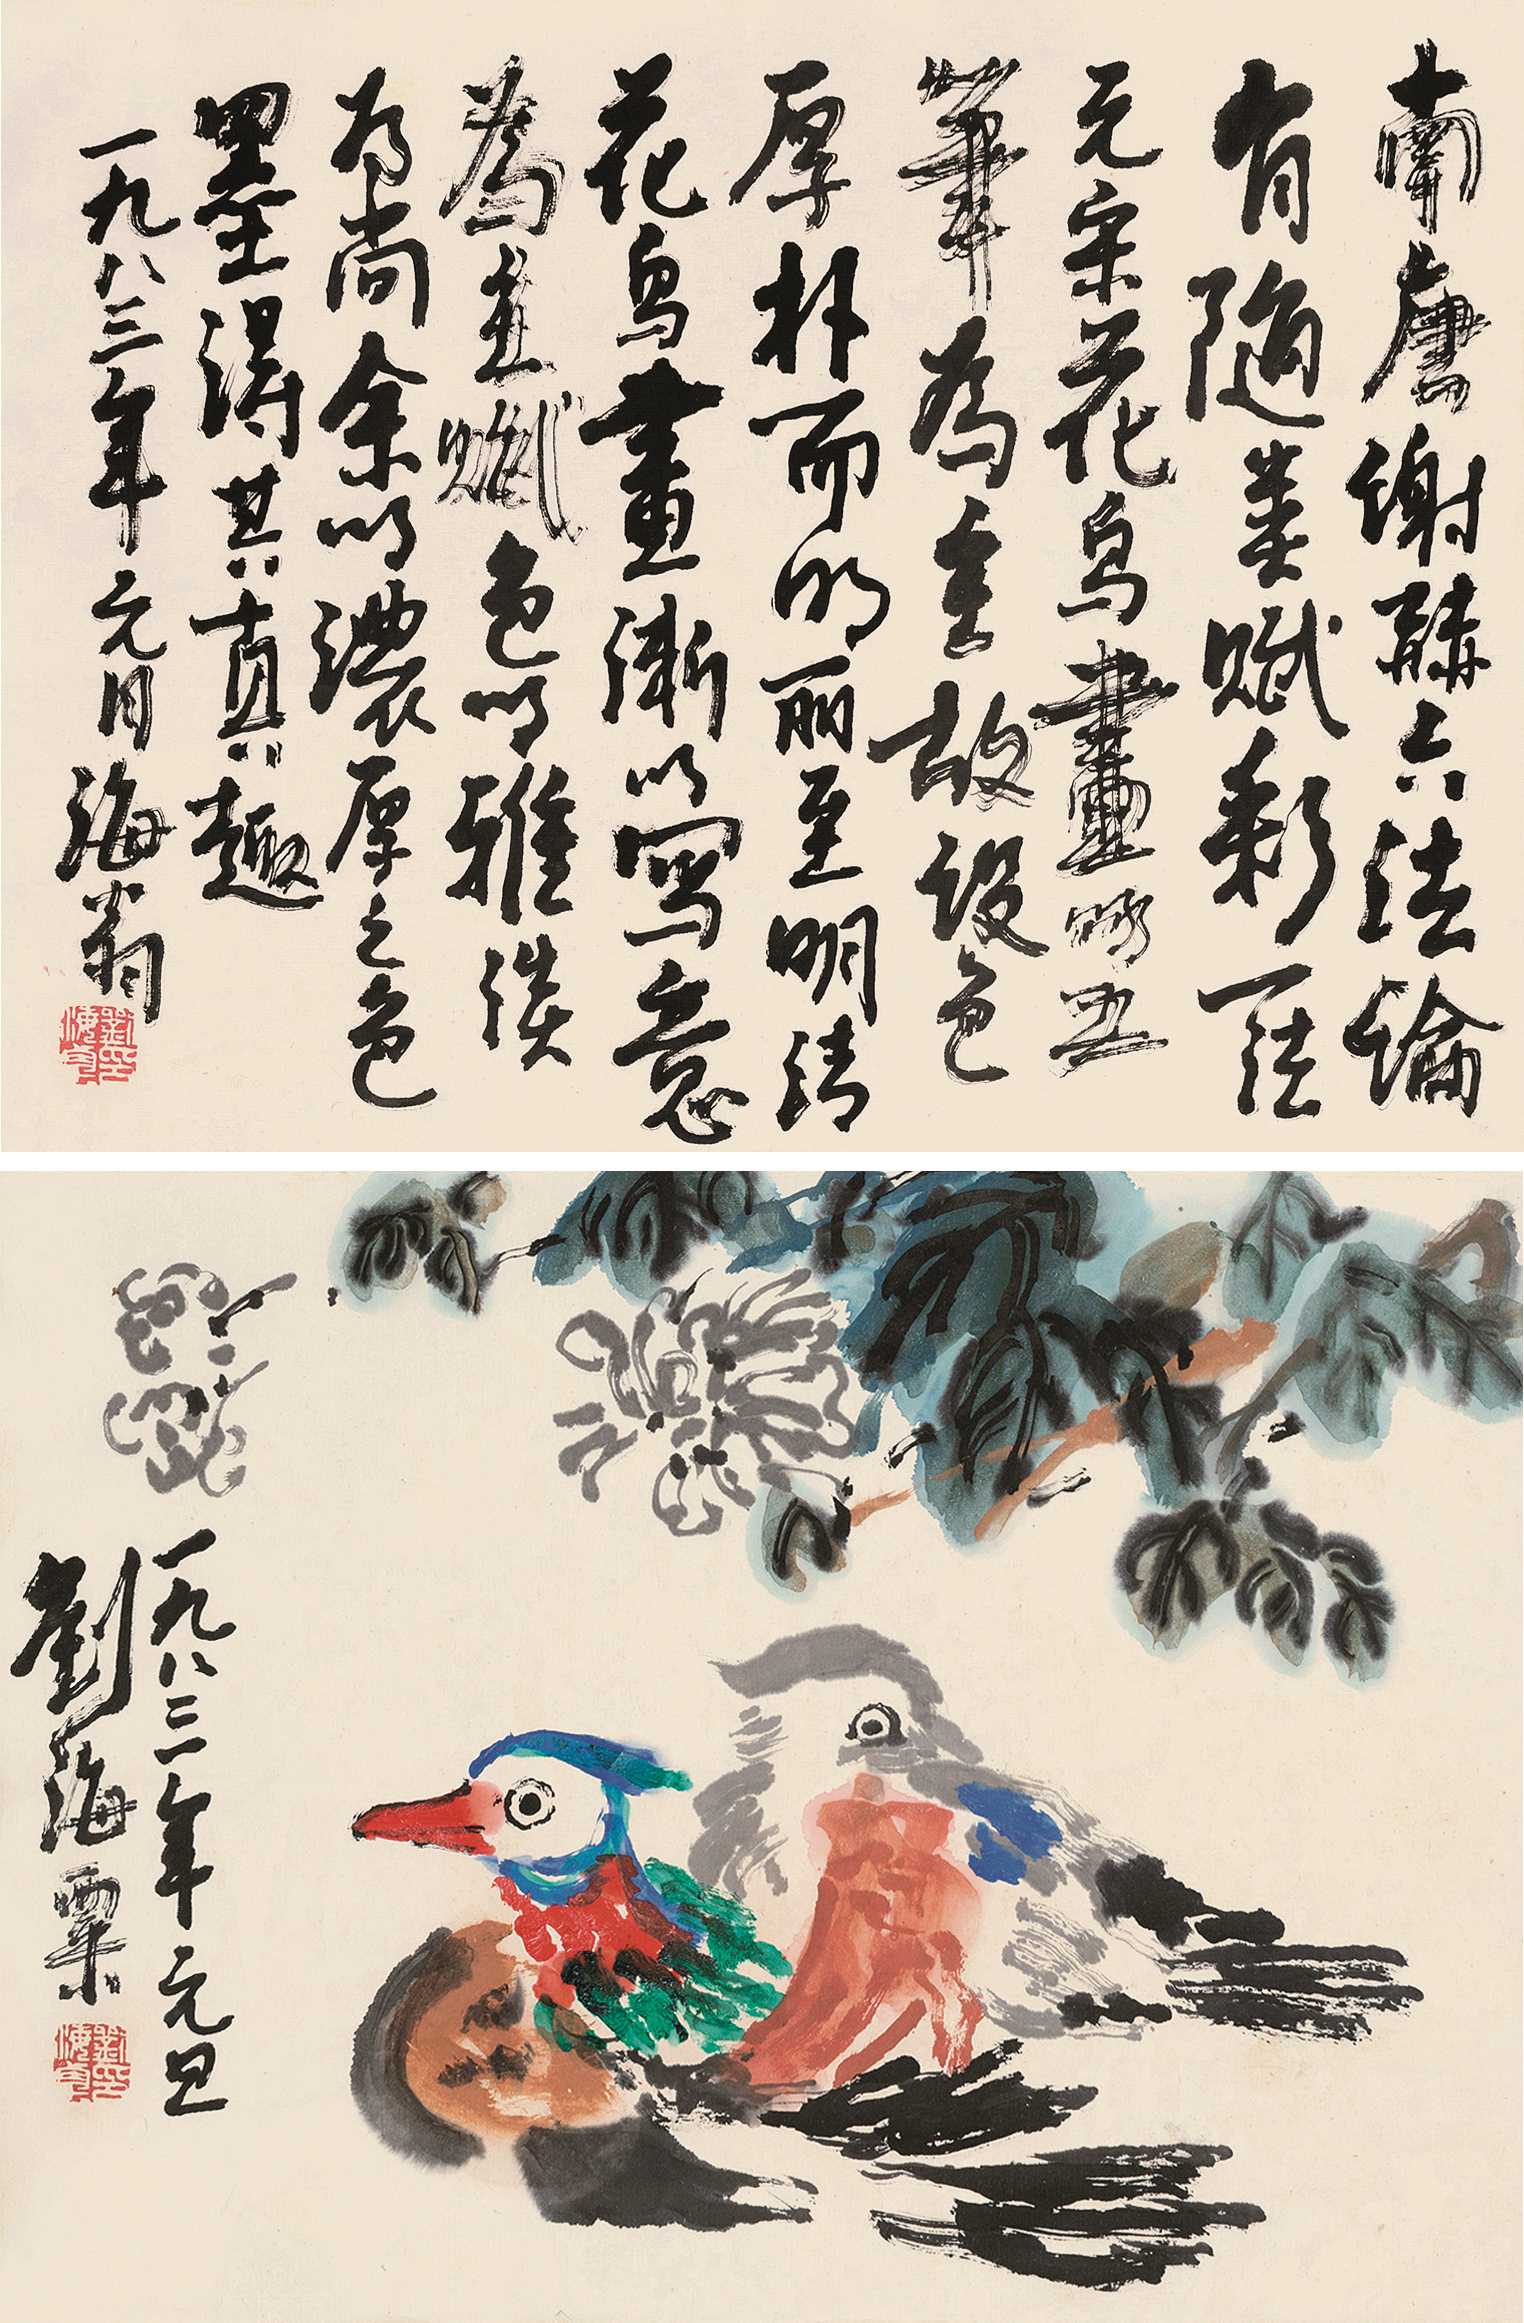 南唐谢赫六法論
有随类赋彩一法
元宋花鸟畫
筆为主故设色
厚朴而明丽至明清
花鸟畫漸以寫意
為主赋色以雅淡
为尚余以濃厚之色
墨得其真趣
一九八三年元月海翁
一九八三年元旦
劉海粟